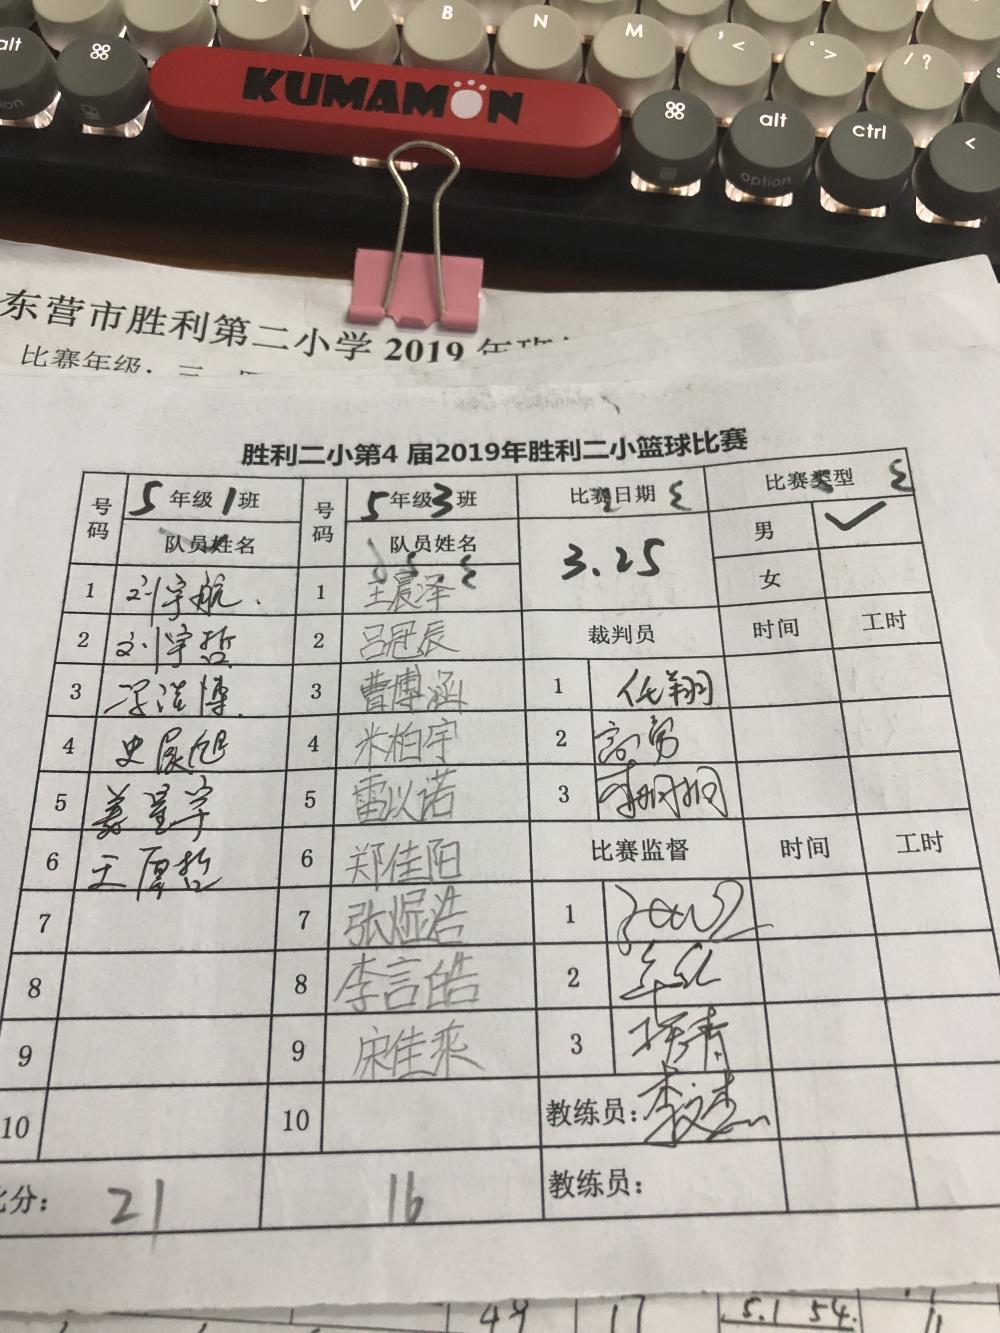 alt
⌘
V
B
N
M
, <
. >
/ ?
KUMAMON
⌘
alt
option
ctrl
<
东营市胜利第二小学 2019 年班
比赛年级：三
胜利二小第4 届2019年胜利二小篮球比赛
号码 5 年级 1 班 号码 5 年级 3 班 比赛日期 比赛类型
队员姓名 队员姓名 3.25 男 ✓
1 刘宇航 1 王晨泽 女
2 刘宇哲 2 吕冠辰 裁判员 时间 工时
3 3 曹博涵 1 任翔
4 史展旭 4 米柏宇 2 高勇
5 姜星宇 5 雷以诺 3
6 王厚哲 6 郑佳阳 比赛监督 时间 工时
7 7 张煜浩 1
8 8 李言皓 2
9 9 宋佳乘 3
10 10 教练员：
比分： 21 16 教练员：
49 17 5.1 54. 11